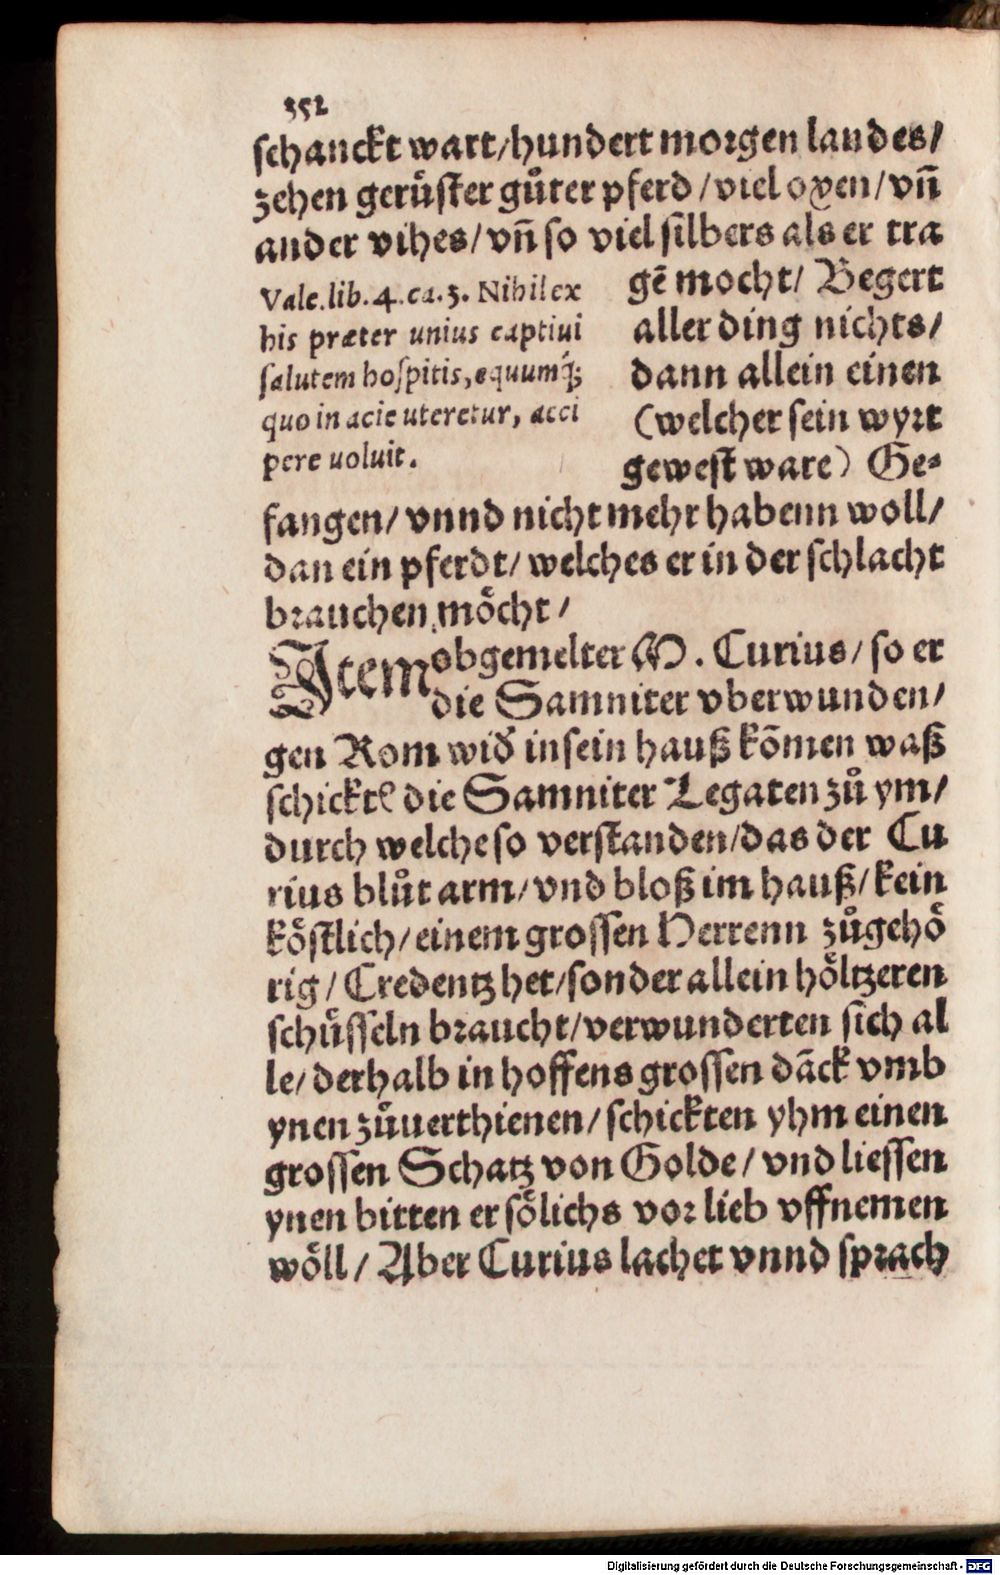 352
schanckt wart/hundert morgen landes/
zehen gerüster gůter pferd/viel oxen/vñ
ander vihes/vñ so viel silbers als er tra
gē mocht/ Begert
aller ding nichts/
dann allein einen
(welcher sein wyrt
gewest ware) Ge⸗
Vale. lib. 4. ca. 3. Nihil ex
his præter unius captiui
salutem hospitis, equumq́;
quo in acie uteretur, acci
pere uoluit.
fangen/ vnnd nicht mehr habenn woll/
dan ein pferdt/ welches er in der schlacht
brauchen möcht/
Item obgemelter M. Curius/ so er
die Samniter vberwunden/
gen Rom wid̕ in sein hauß kōmen waß
schicktē die Samniter Legaten zů ym/
durch welche so verstanden/das der Cu
rius blůt arm/ vnd bloß im hauß/ kein
köstlich/ einem grossen Herrenn zůgehö
rig/ Credentz het/sonder allein höltzeren
schüsseln braucht/verwunderten sich al
le/ derhalb in hoffens grossen dāck vmb
ynen zůuerthienen/ schickten yhm einen
grossen Schatz von Golde/ vnd liessen
ynen bitten er sölichs vor lieb vffnemen
wöll/ Aber Curius lachet vnnd sprach
Digitalisierung gefördert durch die Deutsche Forschungsgemeinschaft - DFG